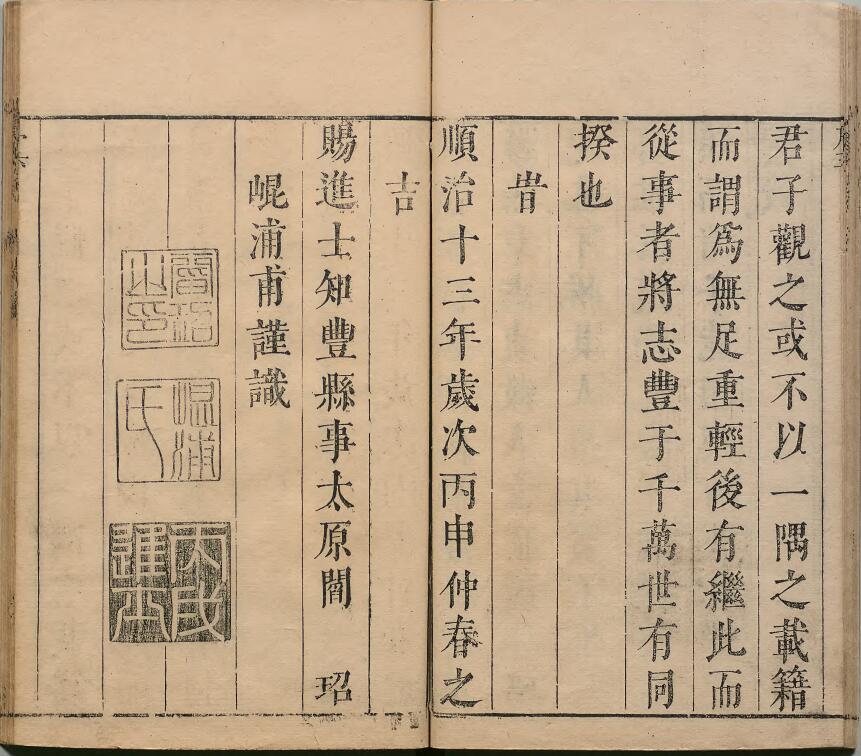 君子觀之或不以一隅之載籍
而謂爲無足重輕後有繼此而
從事者將志豐于千萬世有同
揆也
旹
順治十三年歲次丙申仲春之
吉
賜進士知豐縣事太原閻 玿
崐浦甫謹識
崐浦氏